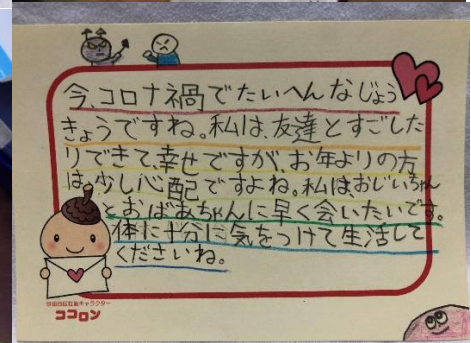 今、コロナ禍でたいへんなじょう
きょうですね。私は、友達とすごした
りできて、幸せですが、お年よりの方
は、少し心配ですよね。私は、おじいちゃん
とおばあちゃんに早く会いたいです。
体に十分に気をつけて生活して
くださいね。
ココロン